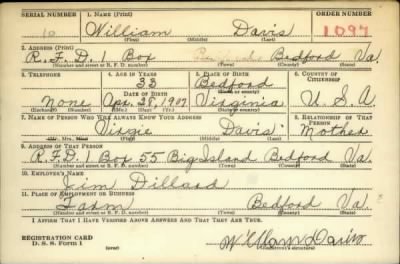 SERIAL NUMBER 1. NAME (Print) ORDER NUMBER
10 William Davis 1097
(First) (Middle) (Last)
2. ADDRESS (Print)
R.F.D. 1 Box Bedford Va.
(Number and street or R. F. D. number) (Town) (County) (State)
3. TELEPHONE 4. AGE IN YEARS 5. PLACE OF BIRTH 6. COUNTRY OF CITIZENSHIP
33 Bedford
DATE OF BIRTH (Town or county)
None Apr. 28, 1907 Virginia U.S.A.
(Exchange) (Number) (Mo.) (Day) (Yr.) (State or country)
7. NAME OF PERSON WHO WILL ALWAYS KNOW YOUR ADDRESS 8. RELATIONSHIP OF THAT PERSON
Virgie Davis Mother
(Mr., Mrs., Miss) (First) (Middle) (Last)
9. ADDRESS OF THAT PERSON
R.F.D. Box 55 Big Island Bedford Va.
(Number and street or R. F. D. number) (Town) (County) (State)
10. EMPLOYER'S NAME
Jim Dillard
11. PLACE OF EMPLOYMENT OR BUSINESS
Farm Bedford Va.
(Number and street or R. F. D. number) (Town) (County) (State)
I AFFIRM THAT I HAVE VERIFIED ABOVE ANSWERS AND THAT THEY ARE TRUE.
REGISTRATION CARD
D. S. S. Form 1 (over) William Davis
(Registrant's signature)